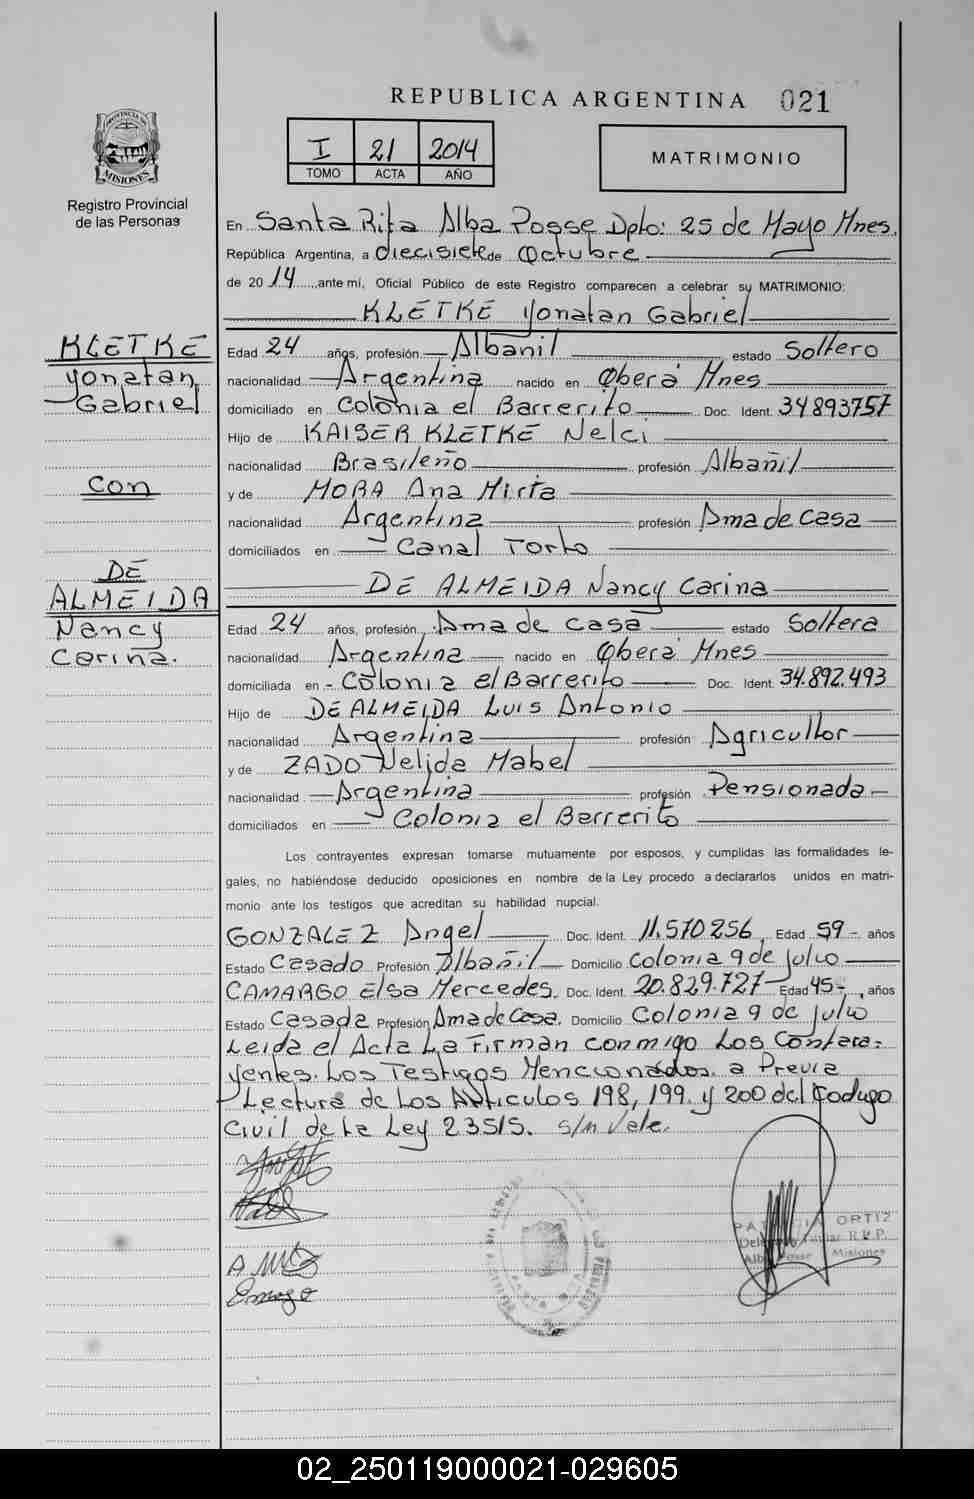 REPUBLICA ARGENTINA 021
I 21 2014
TOMO ACTA AÑO
MATRIMONIO
PROVINCIA DE
MISIONES
Registro Provincial
de las Personas
En Santa Rita Alba Posse Dpto: 25 de Mayo Mnes.
República Argentina, a diecisiete de Octubre
de 2014, ante mí, Oficial Público de este Registro comparecen a celebrar su MATRIMONIO:
KLETKE Yonatan Gabriel
KLETKE
Yonatan
Gabriel
Con
DE
ALMEIDA
Nancy
Carina.
Edad 24 años, profesión Albañil estado Soltero
nacionalidad Argentina nacido en Oberá Mnes
domiciliado en Colonia el Barrerito Doc. Ident. 34893757
Hijo de KAISER KLETKE Nelci
nacionalidad Brasileño profesión Albañil
y de MORA Ana Mirta
nacionalidad Argentina profesión Ama de Casa
domiciliados en Canal Torto
DE ALMEIDA Nancy Carina
Edad 24 años, profesión Ama de casa estado Soltera
nacionalidad Argentina nacido en Oberá Mnes
domiciliada en Colonia el Barrerito Doc. Ident. 34.892.493
Hijo de DE ALMEIDA Luis Antonio
nacionalidad Argentina profesión Agricultor
y de ZADO Nelida Mabel
nacionalidad Argentina profesión Pensionada
domiciliados en Colonia el Barrerito
Los contrayentes expresan tomarse mutuamente por esposos, y cumplidas las formalidades le-
gales, no habiéndose deducido oposiciones en nombre de la Ley procedo a declararlos unidos en matri-
monio ante los testigos que acreditan su habilidad nupcial.
GONZALEZ Angel Doc. Ident. 11.570256, Edad 59 años
Estado Casado Profesión Albañil Domicilio Colonia 9 de julio
CAMARGO Elsa Mercedes. Doc. Ident. 20.829.727 Edad 45, años
Estado Casada Profesión Ama de Casa. Domicilio Colonia 9 de julio
Leida el Acta La Firman conmigo Los Contara-
yentes. Los Testigos Mencionados. a Previa
Lectura de Los Articulos 198, 199. y 200 del Codugo
Civil de La Ley 23515. s/n Vale.
PATRICIA ORTIZ
Titular R.P.P.
Alba Posse Misiones
02_250119000021-029605